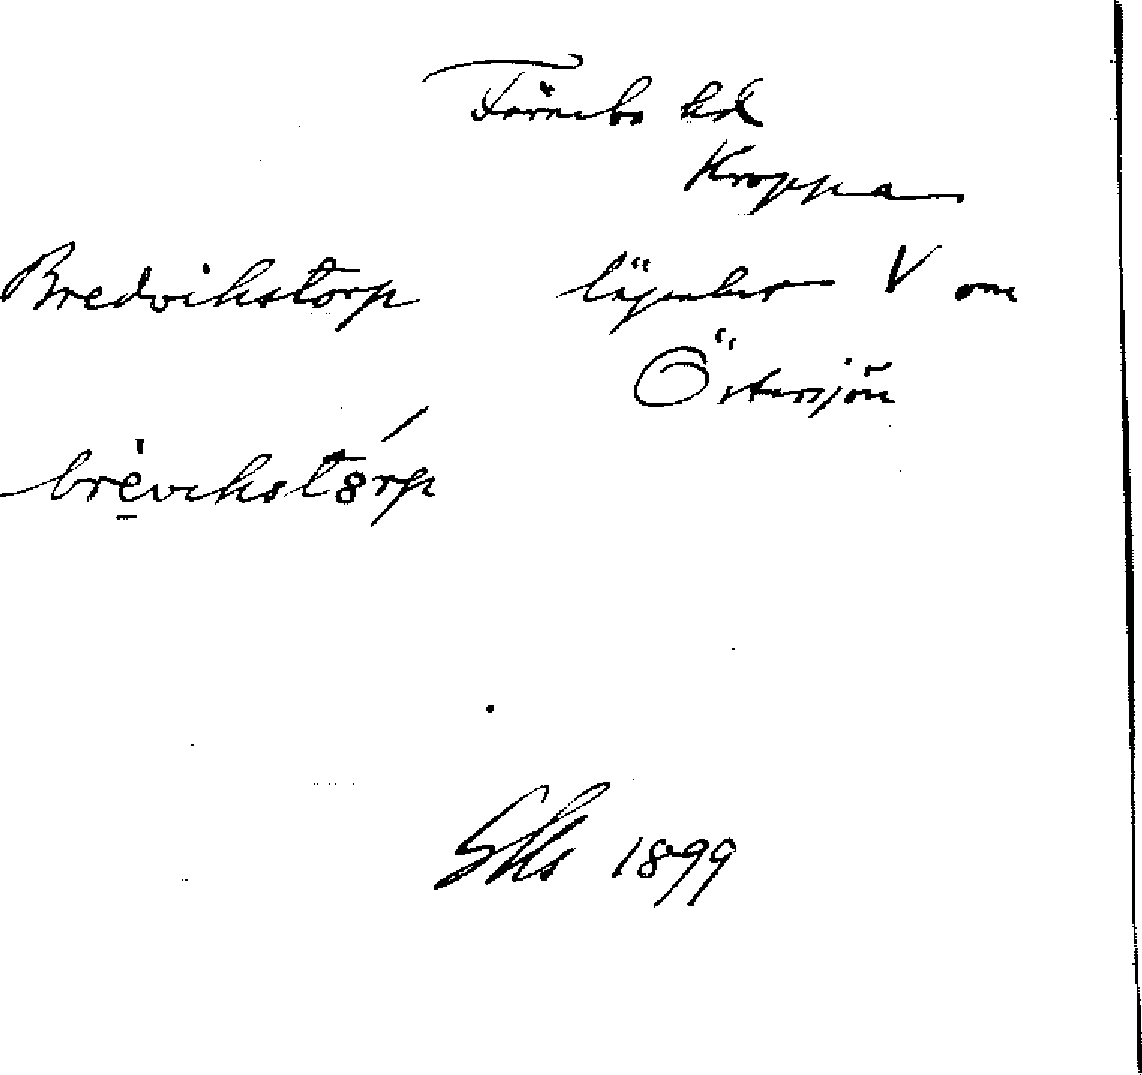 Färnebo hd
Kroppa
Bredvikstorp lägenhet V om
Östersjön
brèvikstórp
Sks 1899